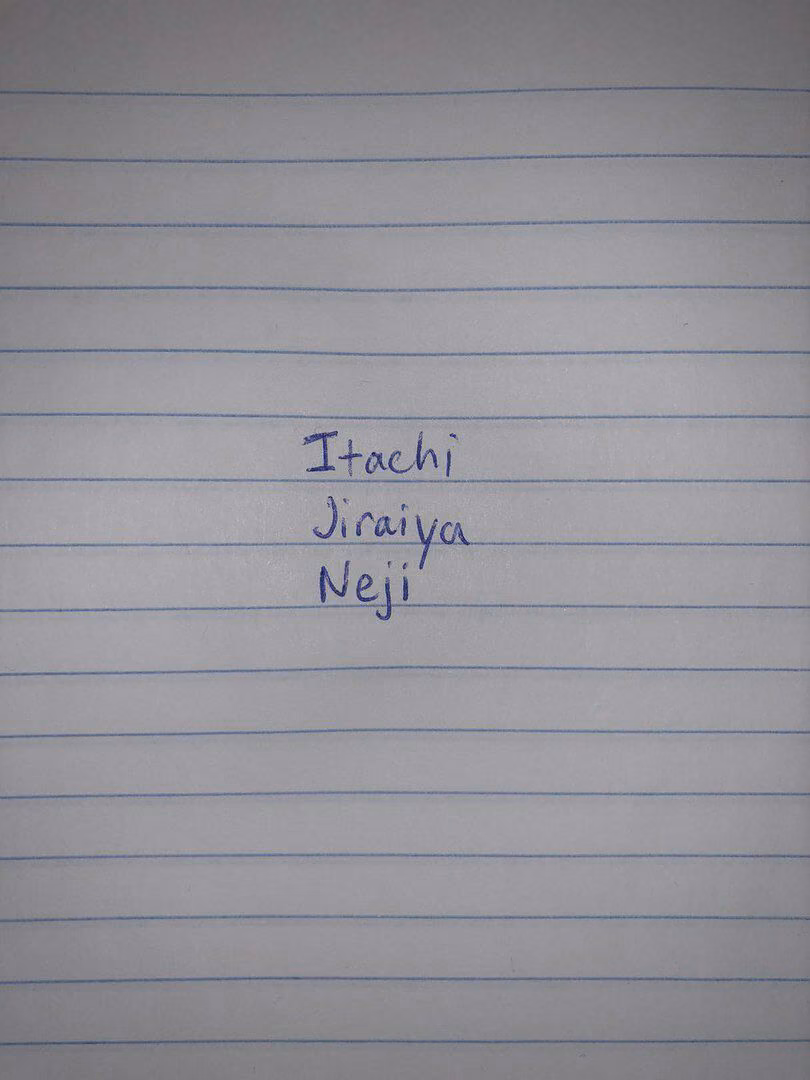 Itachi
Jiraiya
Neji